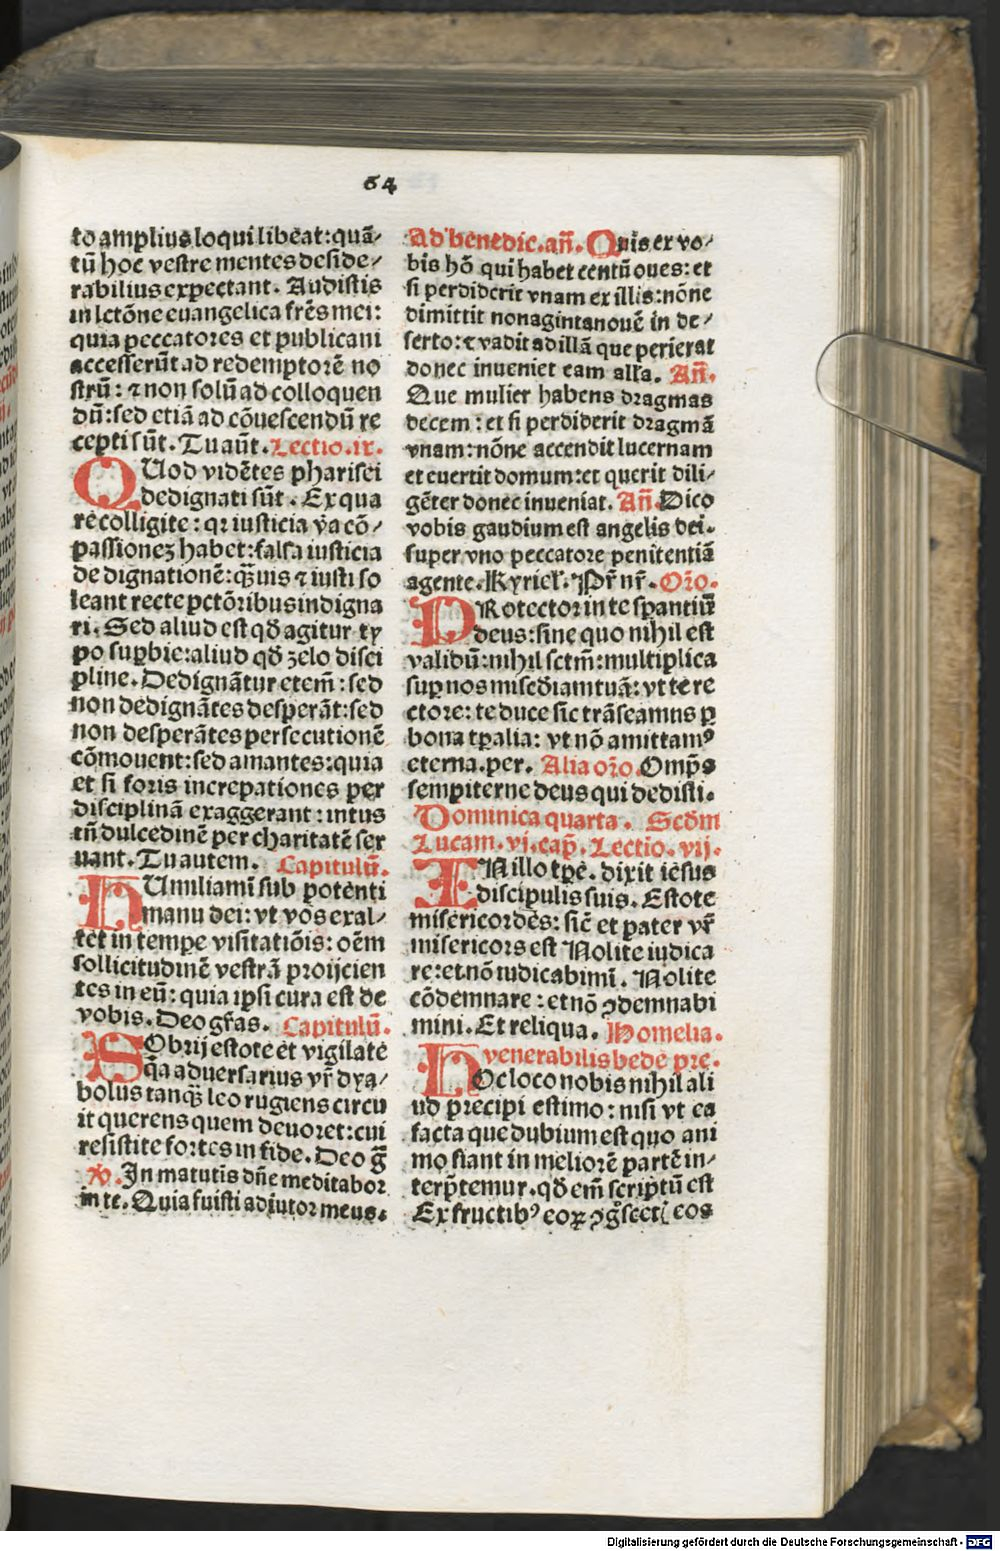 64
to amplius loqui libeat: quã⸗
tũ hoc vestre mentes deside⸗
rabilius expectant. Audistis
in lctõne euangelica frẽs mei:
quia peccatores et publicani
accesserũt ad redemptorẽ no
strũ: ⁊ non solũ ad colloquen
dũ: sed etiã ad cõuescendũ re
cepti sũt. Tu aũt. Lectio.ix.
QUod vidẽtes pharisei
dedignati sũt. Ex qua
re colligite: qꝛ iusticia v̾a cõ⸗
passionez habet: falsa iusticia
de dignationẽ: qᷓuis ⁊ iusti so
leant recte pctõribus indigna
ri. Sed aliud est qď agitur ty
po suꝑbie: aliud qď zelo disci
pline. Dedignãtur etem̃: sed
non dedignãtes desperãt: sed
non desperãtes persecutionẽ
cõmouent: sed amantes: quia
et si foris increpationes per
disciplinã exaggerant: intus
tñ dulcedinẽ per charitatẽ ser
uant. Tu autem. Capitulũ.
HUmiliamĩ sub potenti
manu dei: vt vos exal⸗
tet in tempe visitatiõis: oẽm
sollicitudinẽ vestrã proijcien
tes in eũ: quia ipsi cura est de
vobis. Deo gr̃as. Capitulũ.
SObrij estote et vigilate
qᷓa aduersarius vr̃ dya⸗
bolus tanqᷓ leo rugiens circu
it querens quem deuoret: cui
resistite fortes in fide. Deo g̃
℣. In matutis dñe meditabor
in te. Quia fuisti adiutor meus.
Ad benedic. añ. Quis ex vo⸗
bis hõ qui habet centũ oues: et
si perdiderit vnam ex illis: nõne
dimittit nonagintanouẽ in de⸗
serto: ⁊ vadit ad illã que perierat
donec inueniet eam alľa. Añ.
Que mulier habens dragmas
decem: et si perdiderit dragmã
vnam: nõne accendit lucernam
et euertit domum: et querit dili⸗
gẽter donec inueniat. Añ. Dico
vobis gaudium est angelis dei.
super vno peccatore penitentiã
agente. Kyrieľ. Pr̃ nr̃. Orõ.
PRotector in te sꝑantiũ
deus: sine quo nihil est
validũ: nihil sctm̃: multiplica
suꝑ nos misẽdiam tuã: vt te re
ctore: te duce sic trãseamus ꝑ
bona tꝑalia: vt nõ amittamꝰ
eterna. per. Alia orõ. Omp̃s
sempiterne deus qui dedisti.
Dominica quarta. Scďm
Lucam. vj. cap̃. Lectio. vij.
IN illo tꝑe. dixit iesus
discipulis suis. Estote
misericordẽs: sic̃ et pater vr̃
misericors est Nolite iudica
re: et nõ iudicabimĩ. Nolite
cõdemnare: et nõ ꝯdemnabi
mini. Et reliqua. Homelia.
venerabilis bede pre.
HOc loco nobis nihil ali
ud precipi estimo: nisi vt ea
facta que dubium est quo ani
mo fiant in meliorẽ partẽ in⸗
terp̃temur. qď em̃ scriptũ est
Ex fructibꝰ eoꝝ ꝯg̃scetis eos
Digitalisierung gefördert durch die Deutsche Forschungsgemeinschaft - DFG